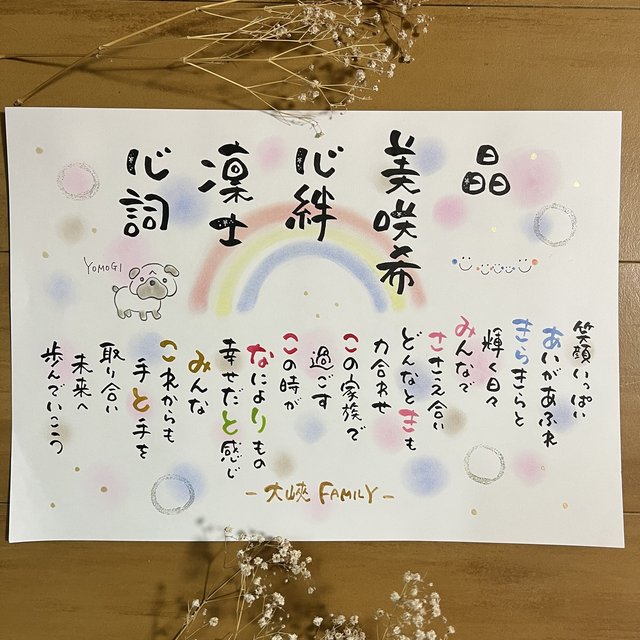 晶
美咲希
心絆
凜士
心詞
YOMOGI
笑顔いっぱい
あいがあふれ
きらきらと
輝く日々
みんなで
ささえ合い
どんなときも
力合わせ
この家族で
過ごす
この時が
なによりもの
幸せだと感じ
みんな
これからも
手と手を
取り合い
未来へ
歩んでいこう
－大峽 FAMILY－